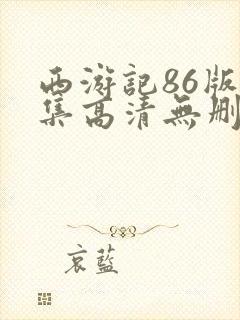 西游記86版
集高清無刪
哀藍